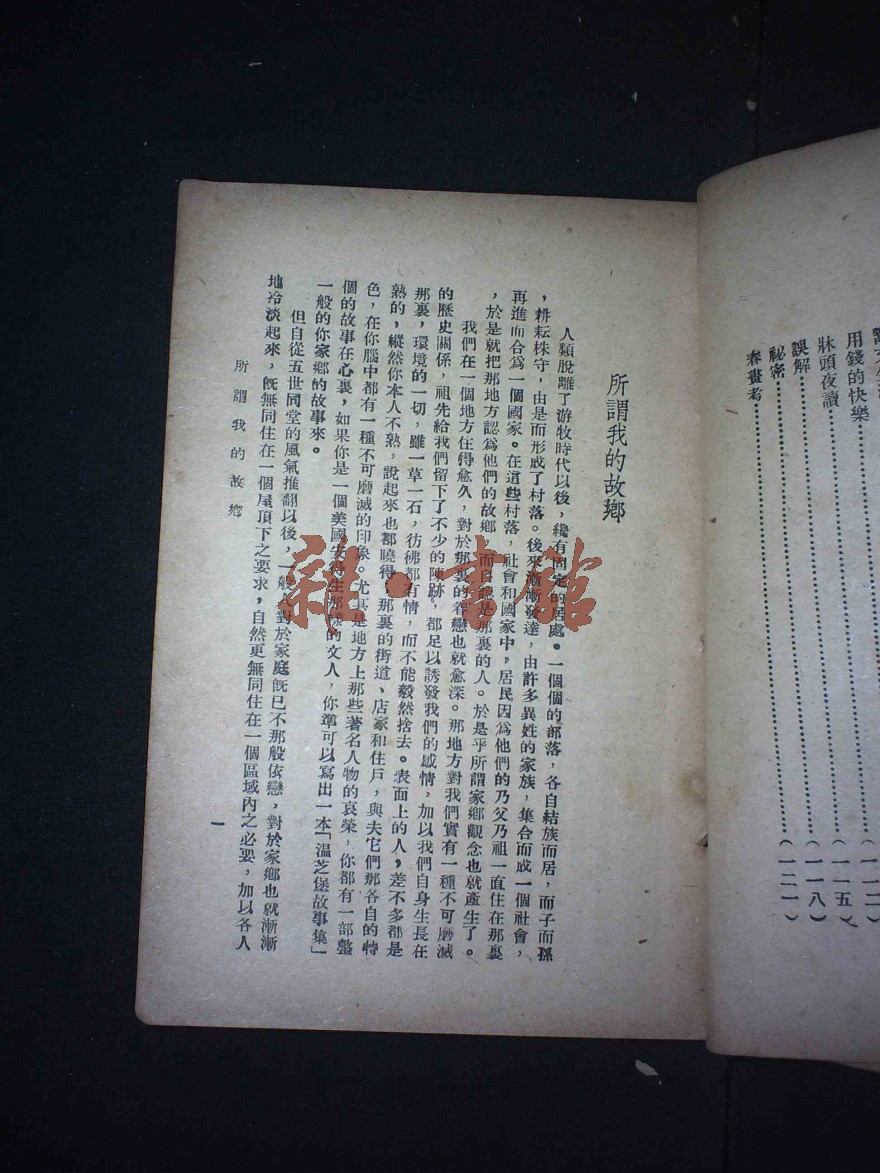 用錢的快樂
牀頭夜讀………(一一五)
誤解………(一一八)
祕密………(一二一)
春畫考
所謂我的故鄉
人類脫離了游牧時代以後，纔有固定的居處。一個個的部落，各自結族而居，而子而孫
，耕耘株守，由是而形成了村落。後來漸漸發達，由許多異姓的家族，集合而成一個社會，
再進而合爲一個國家。在這些村落，社會和國家中，居民因爲他們的乃父乃祖一直住在那裏
，於是就把那地方認爲他們的故鄉，而自認是那裏的人。於是乎所謂家鄉觀念也就產生了。
我們在一個地方住得愈久，對於那裏的眷戀也就愈深。那地方對我們實有一種不可磨滅
的歷史關係，祖先給我們留下了不少的陳跡，都足以誘發我們的感情，加以我們自身生長在
那裏，環境的一切，雖一草一石，彷彿都有情，而不能毅然捨去。表面上的人，差不多都是
熟的，縱然你本人不熟，說起來也都曉得。那裏的街道、店家和住戶，與夫它們那各自的特
色，在你腦中都有一種不可磨滅的印象。尤其是地方上那些著名人物的哀榮，你都有一部整
個的故事在心裏，如果你是一個美國安得生那樣的文人，你準可以寫出一本「温芝堡故事集」
一般的你家鄉的故事來。
但自從五世同堂的風氣推翻以後，一般人對於家庭旣已不那般依戀，對於家鄉也就漸漸
地冷淡起來，旣無同住在一個屋頂下之要求，自然更無同住在一個區域內之必要，加以各人
所謂我的故鄉
一
雜·書館